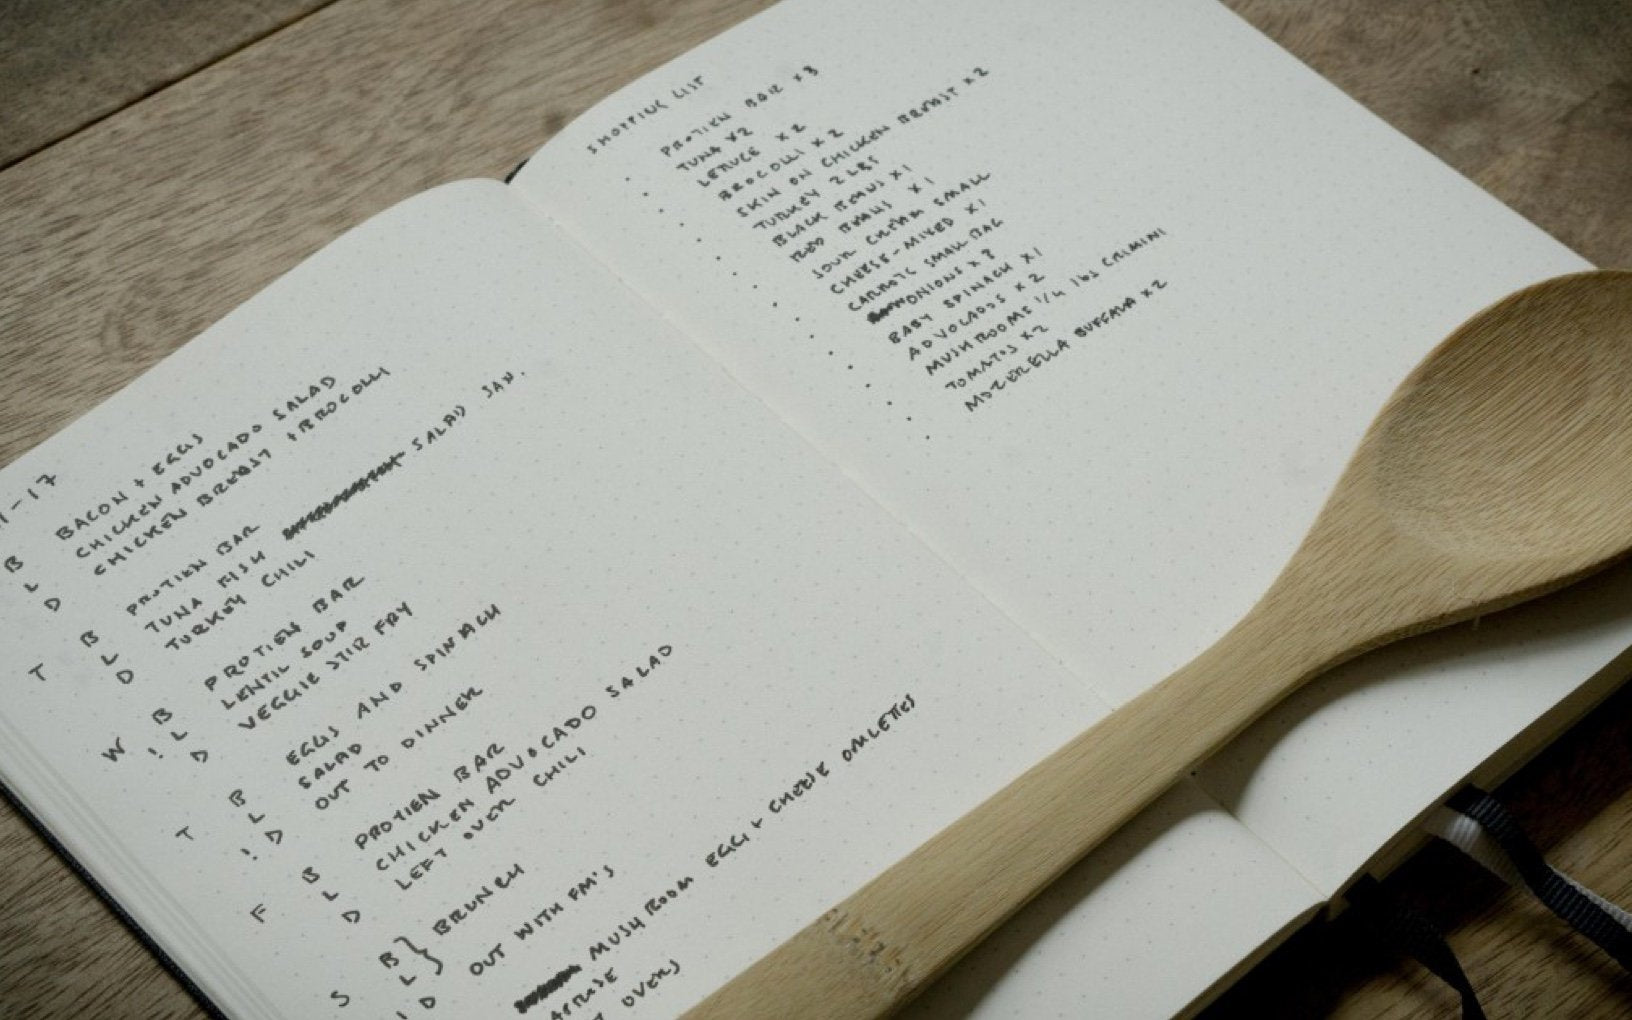 -17
B BACON + EGGS
L CHICKEN ADVOCADO SALAD
D CHICKEN BREAST + BROCOLLI
T B PROTIEN BAR
L TUNA FISH SALAD SAN.
D TURKEY CHILI
W B PROTIEN BAR
! L LENTIL SOUP
D VEGGIE STIR FRY
T B EGGS AND SPINACH
L SALAD
! D OUT TO DINNER
F B PROTIEN BAR
L CHICKEN ADVOCADO SALAD
D LEFT OVER CHILI
S B } BRUNCH
L
! D OUT WITH FM'S
MUSHROOM EGG + CHEESE OMLETTES
OVERS
SHOPPING LIST
· PROTIEN BAR x3
· TUNA x2
· LETTUCE x2
· BROCOLLI x2
· SKIN ON CHICKEN BREAST x2
· TURKEY 2 LBS
· BLACK BEANS x1
· RED BEANS x1
· SOUR CREAM SMALL
· CHEESE-MIXED x1
· CARROTS SMALL BAG
· ONIONS x3
· BABY SPINACH x1
· ADVOCADOS x2
· MUSHROOMS 1/4 lbs CRIMINI
· TOMATOS x2
· MOZERELLA BUFFALA x2